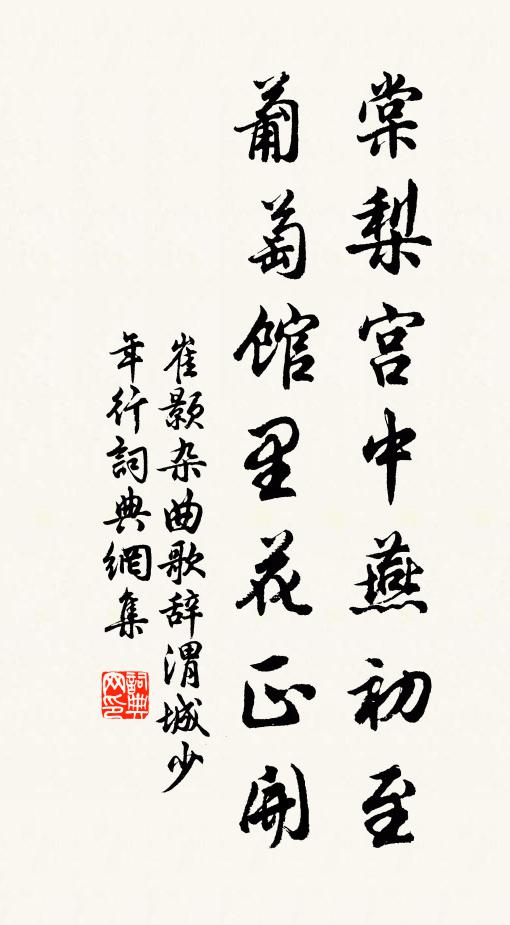 棠梨宫中燕初至
葡萄馆里花正開
崔颢杂曲歌辞渭城少
年行詞典網集
詞典网印